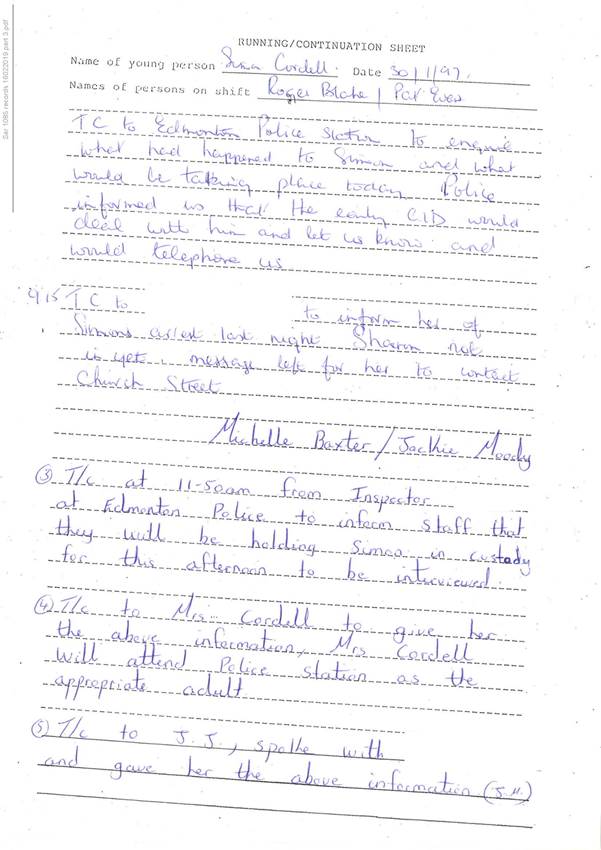 Sar 1085 records 18022019 part 3.pdf
RUNNING/CONTINUATION SHEET
Name of young person Simon Cordell. Date 30/1/97.
Names of persons on shift Roger Blake / Pat
TC to Edmonton Police station to enquire
what had happened to Simon and what
would be taking place today. Police
informed us that the early CID would
deal with him and let us know and
would telephone us
9.15 TC to to inform her of
Simons arrest last night Sharon not
in yet, message left for her to contact
Church Street
Michelle Baxter / Jackie Moody
③ T/c at 11-50am from Inspector
at Edmonton Police to inform staff that
they will be holding Simon in custody
for this afternoon to be interviewed.
④ T/c to Mrs Cordell to give her
the above information, Mrs Cordell
will attend Police station as the
appropriate adult
⑤ T/c to J.J., spoke with
and gave her the above information (J.M.)